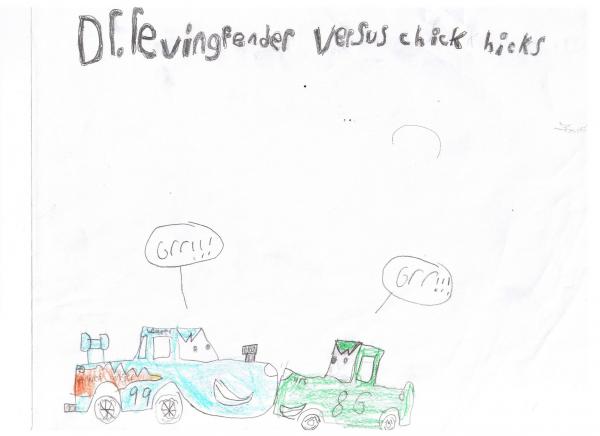 Dr.revingfender Versus chick hicks
Grr!!!
Grr!!!
99
86